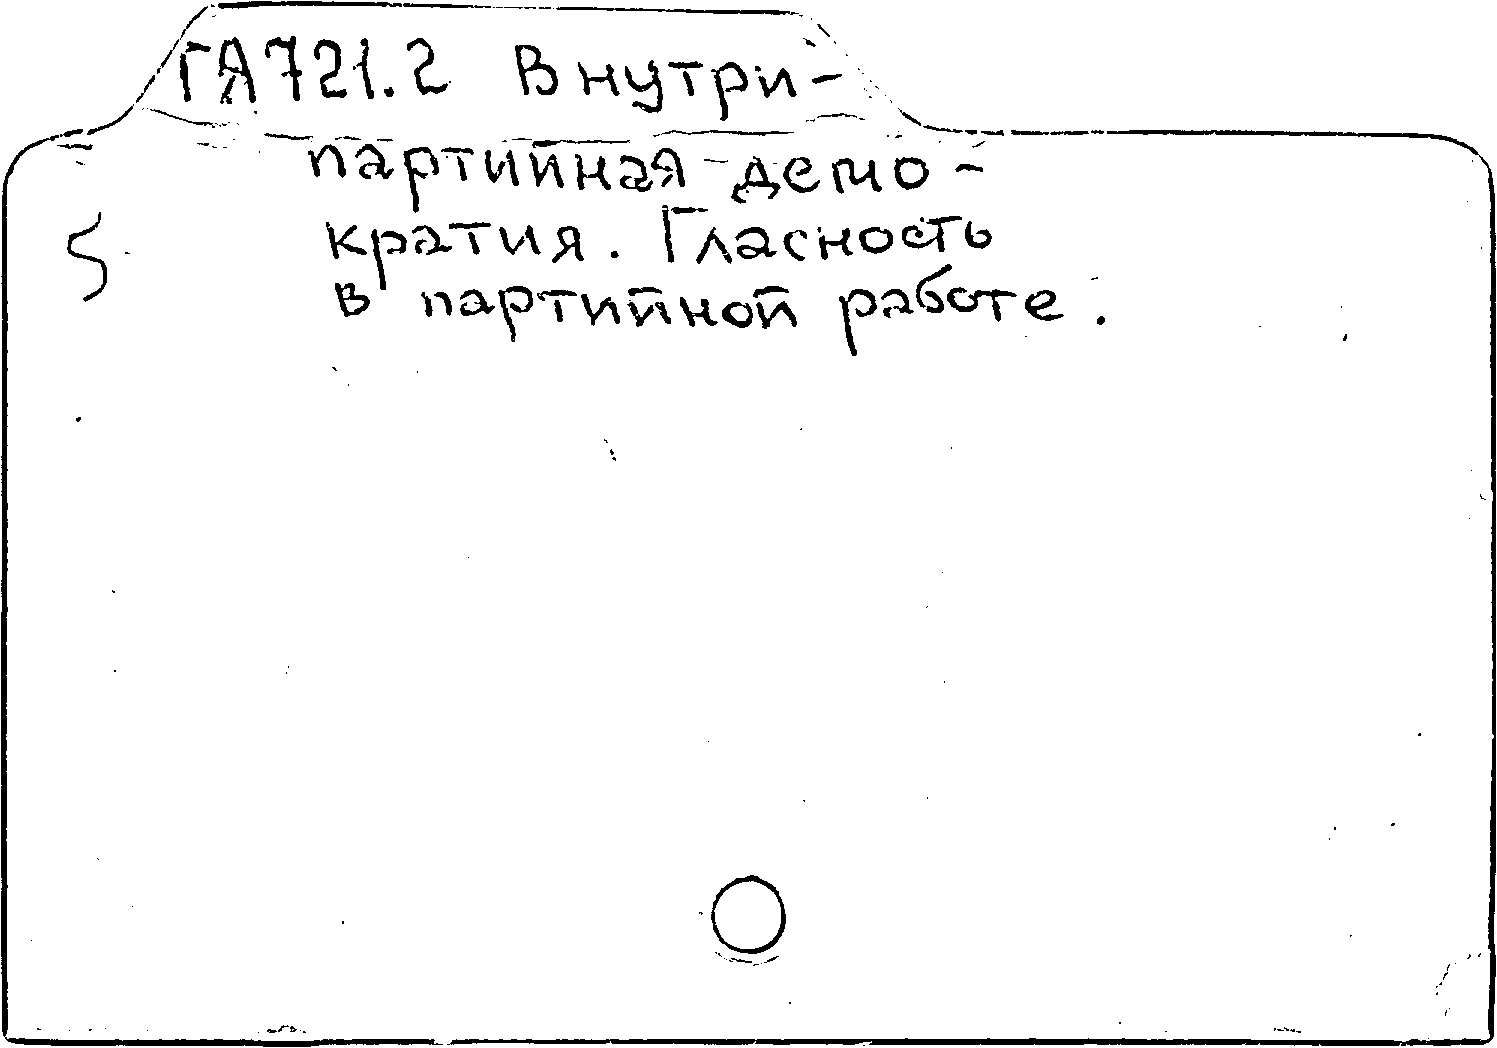 ГА721.2 Внутри-
партийная демо-
кратия. Гласность
в партийной работе.